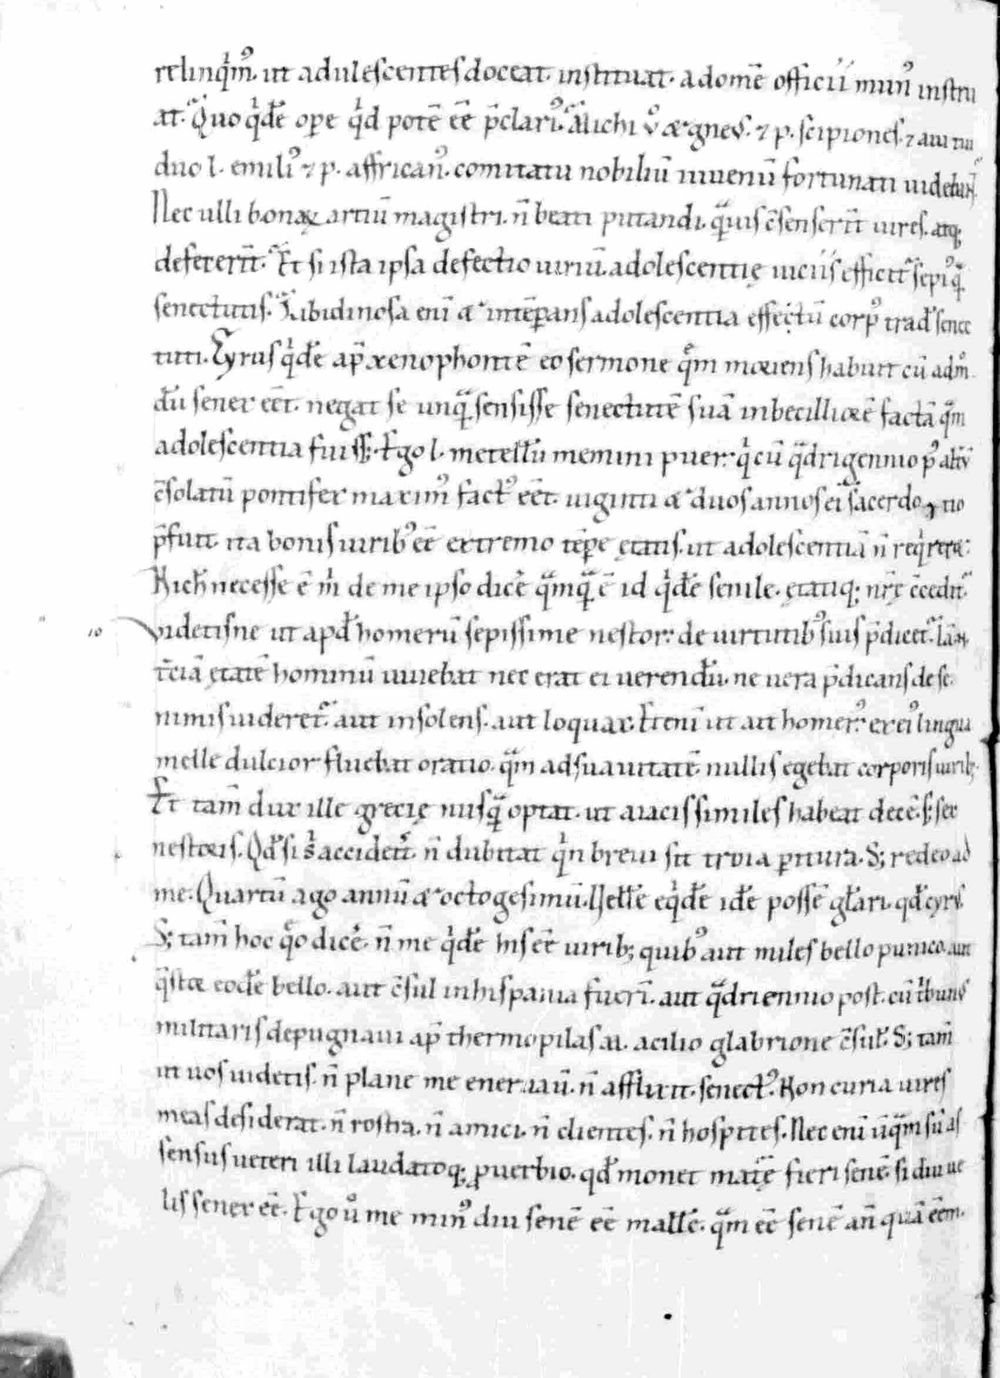 relinq̇m᷒. ut adulescentes doceat. instituat. ad om̅e officii mun᷒ instru
at. Quo q̇dē ope q̇d potē eē p̄clari᷒. M ichi ů & gneꝰ. ⁊ p. scipiones. ⁊ aui tui
duo l. emili᷒ ⁊ p. affrican᷒. comitatu nobiliū iuuenū fortunati uidebant᷒.
Nec ulli bonaꝝ artiū magistri. n̄ beati putandi. qͣmuis c̄senserīt uires. atq;
defecerīt. Et si ista ipsa defectio uiriū. adolescentię uiciis efficit᷒ sepi᷒ qͣ
senectutis. Libidinosa enī & intēperans adolescentia effectū corp᷒ trad̄ senec
tuti. Cyrus q̇dē ap̄ xenophontē eo sermone qͣm moriens habuit cū adm̊
dū senex eēt. negat se unqͣ sensisse senectutē suā inbecilliorē factā qͣm
adolescentia fuiss;. Ego l. metellū memini puer. q̇ cū qͣdrigennio p᷒ alt̄ū
c̄solatū pontifex maxim᷒ fact᷒ eēt. uiginti & duos annos ei sacerdotio
p̄fuit. ita bonis uirib᷒ eē extremo tēpe ętatis. ut adolescentiā n̄ req̇reret.
Nichil̄ necesse ē m̊ de me ipso dicē qͣmqͣ ē id q̇dē senile. ętatiq; nr̄ę c̄cedit᷒.
Videtisne ut apd̄ homerū sepissime nestor. de uirtutib᷒ suis p̄dicet. Iā
t̄ciā ętatē hominū uiuebat nec erat ei uerendū. ne uera p̄dicans de se
nimis uideret᷒ aut insolens. aut loquax. Etenī ut ait homer᷒. ex ei᷒ lingua
melle dulcior fluebat oratio. qͣm ad suauitatē nullis egebat corporis uirib;
Et tam̄ dux ille grecię nusqͣ optat. ut aiacis similes habeat decē. s; sex
nestoris. Qd̄ si s̊ acciderit. n̄ dubitat q̇n breui sit troia ꝑitura. S; redeo ad
me. Quartū ago annū & octogesimū. Uellē eq̇dē idē possē glāri. qd̄ cyrꝰ.
S; tam̄ hoc qͦo dicē. n̄ me q̇dē his eē uirib; quib᷒ aut miles bello punico. aut
q̄stor eodē bello. aut c̄sul in hispania fuerī. aut qͣdriennio post. cū tbunꝰ
militaris depugnaui ap̄ thermopilas M. acilio glabrione c̄sul̄. S; tam̄
ut uos uidetis. n̄ plane me eneruaū. n̄ afflixit. senect᷒. Non curia uires
meas desiderat. n̄ rostra. n̄ amici. n̄ clientes. n̄ hospites. Nec enī ūqͣm sū as
sensus ueteri illi laudatoq; ꝓuerbio. qd̄ monet matē fieri senē. si diu ue
lis senex eē. Ego ů me min᷒ diu senē eē mallē. qͣm eē senē an̄ quā eēm.